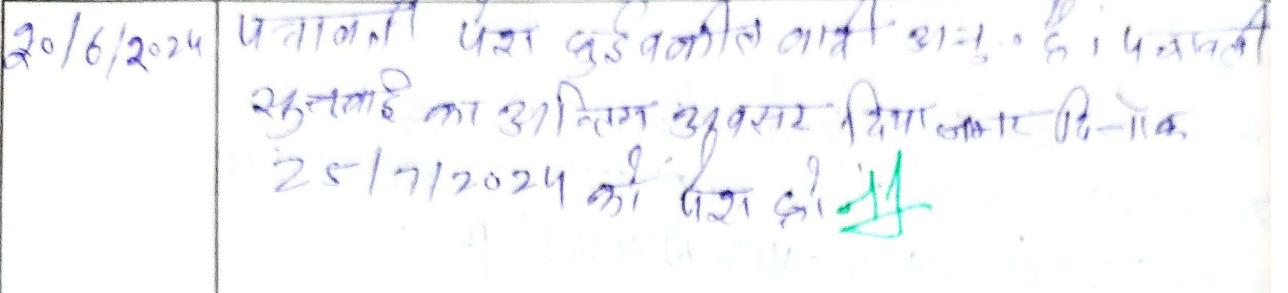 20/6/2024 पत्रावली पेश हुई वकील वादी अनु० है। पत्रावली
सुनवाई का अन्तिम अवसर दिया जाकर दिनांक
25/7/2024 को पेश हो